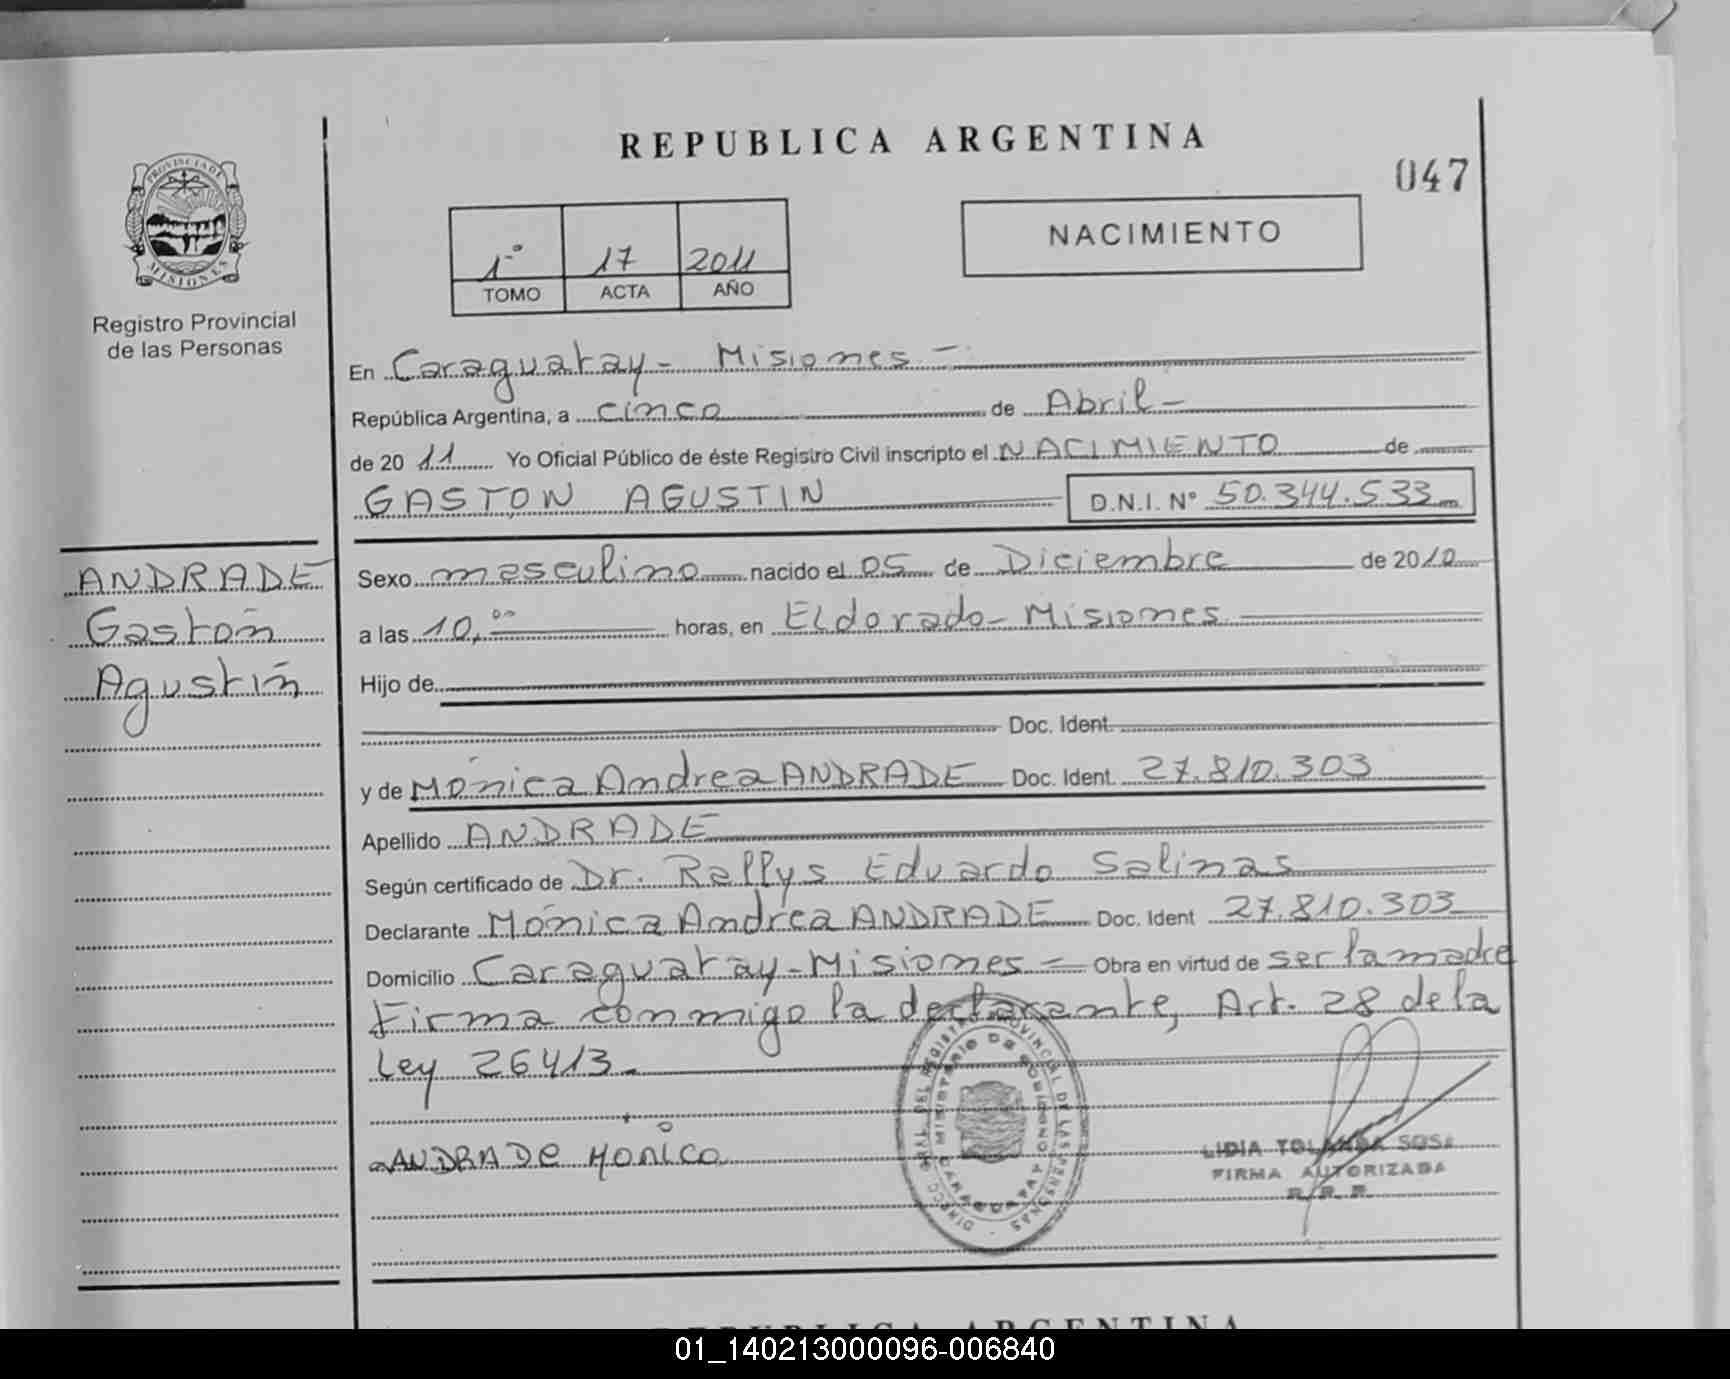 REPUBLICA ARGENTINA
047
PROVINCIA DE MISIONES
Registro Provincial
de las Personas
1º 17 2011
TOMO ACTA AÑO
NACIMIENTO
En Caraguatay - Misiones -
República Argentina, a cinco de Abril -
de 20 11 Yo Oficial Público de éste Registro Civil inscripto el NACIMIENTO de
GASTON AGUSTIN D.N.I. Nº 50.344.533
ANDRADE
Gastón
Agustín
Sexo masculino nacido el 05 de Diciembre de 2010
a las 10,00 horas, en Eldorado - Misiones
Hijo de
Doc. Ident.
y de Mónica Andrea ANDRADE Doc. Ident. 27.810.303
Apellido ANDRADE
Según certificado de Dr. Rallys Eduardo Salinas
Declarante Mónica Andrea ANDRADE Doc. Ident 27.810.303
Domicilio Caraguatay - Misiones = Obra en virtud de ser la madre
Firma conmigo la declarante, Art. 28 de la
Ley 26413.
ANDRADE MONICA
DIRECC. GRAL. DEL REGISTRO PROVINCIAL DE LAS PERSONAS
MINISTERIO DE GOBIERNO
CARAGUATAY
LIDIA YOLANDA SOSA
FIRMA AUTORIZADA
R. P. P.
REPUBLICA ARGENTINA
01_140213000096-006840